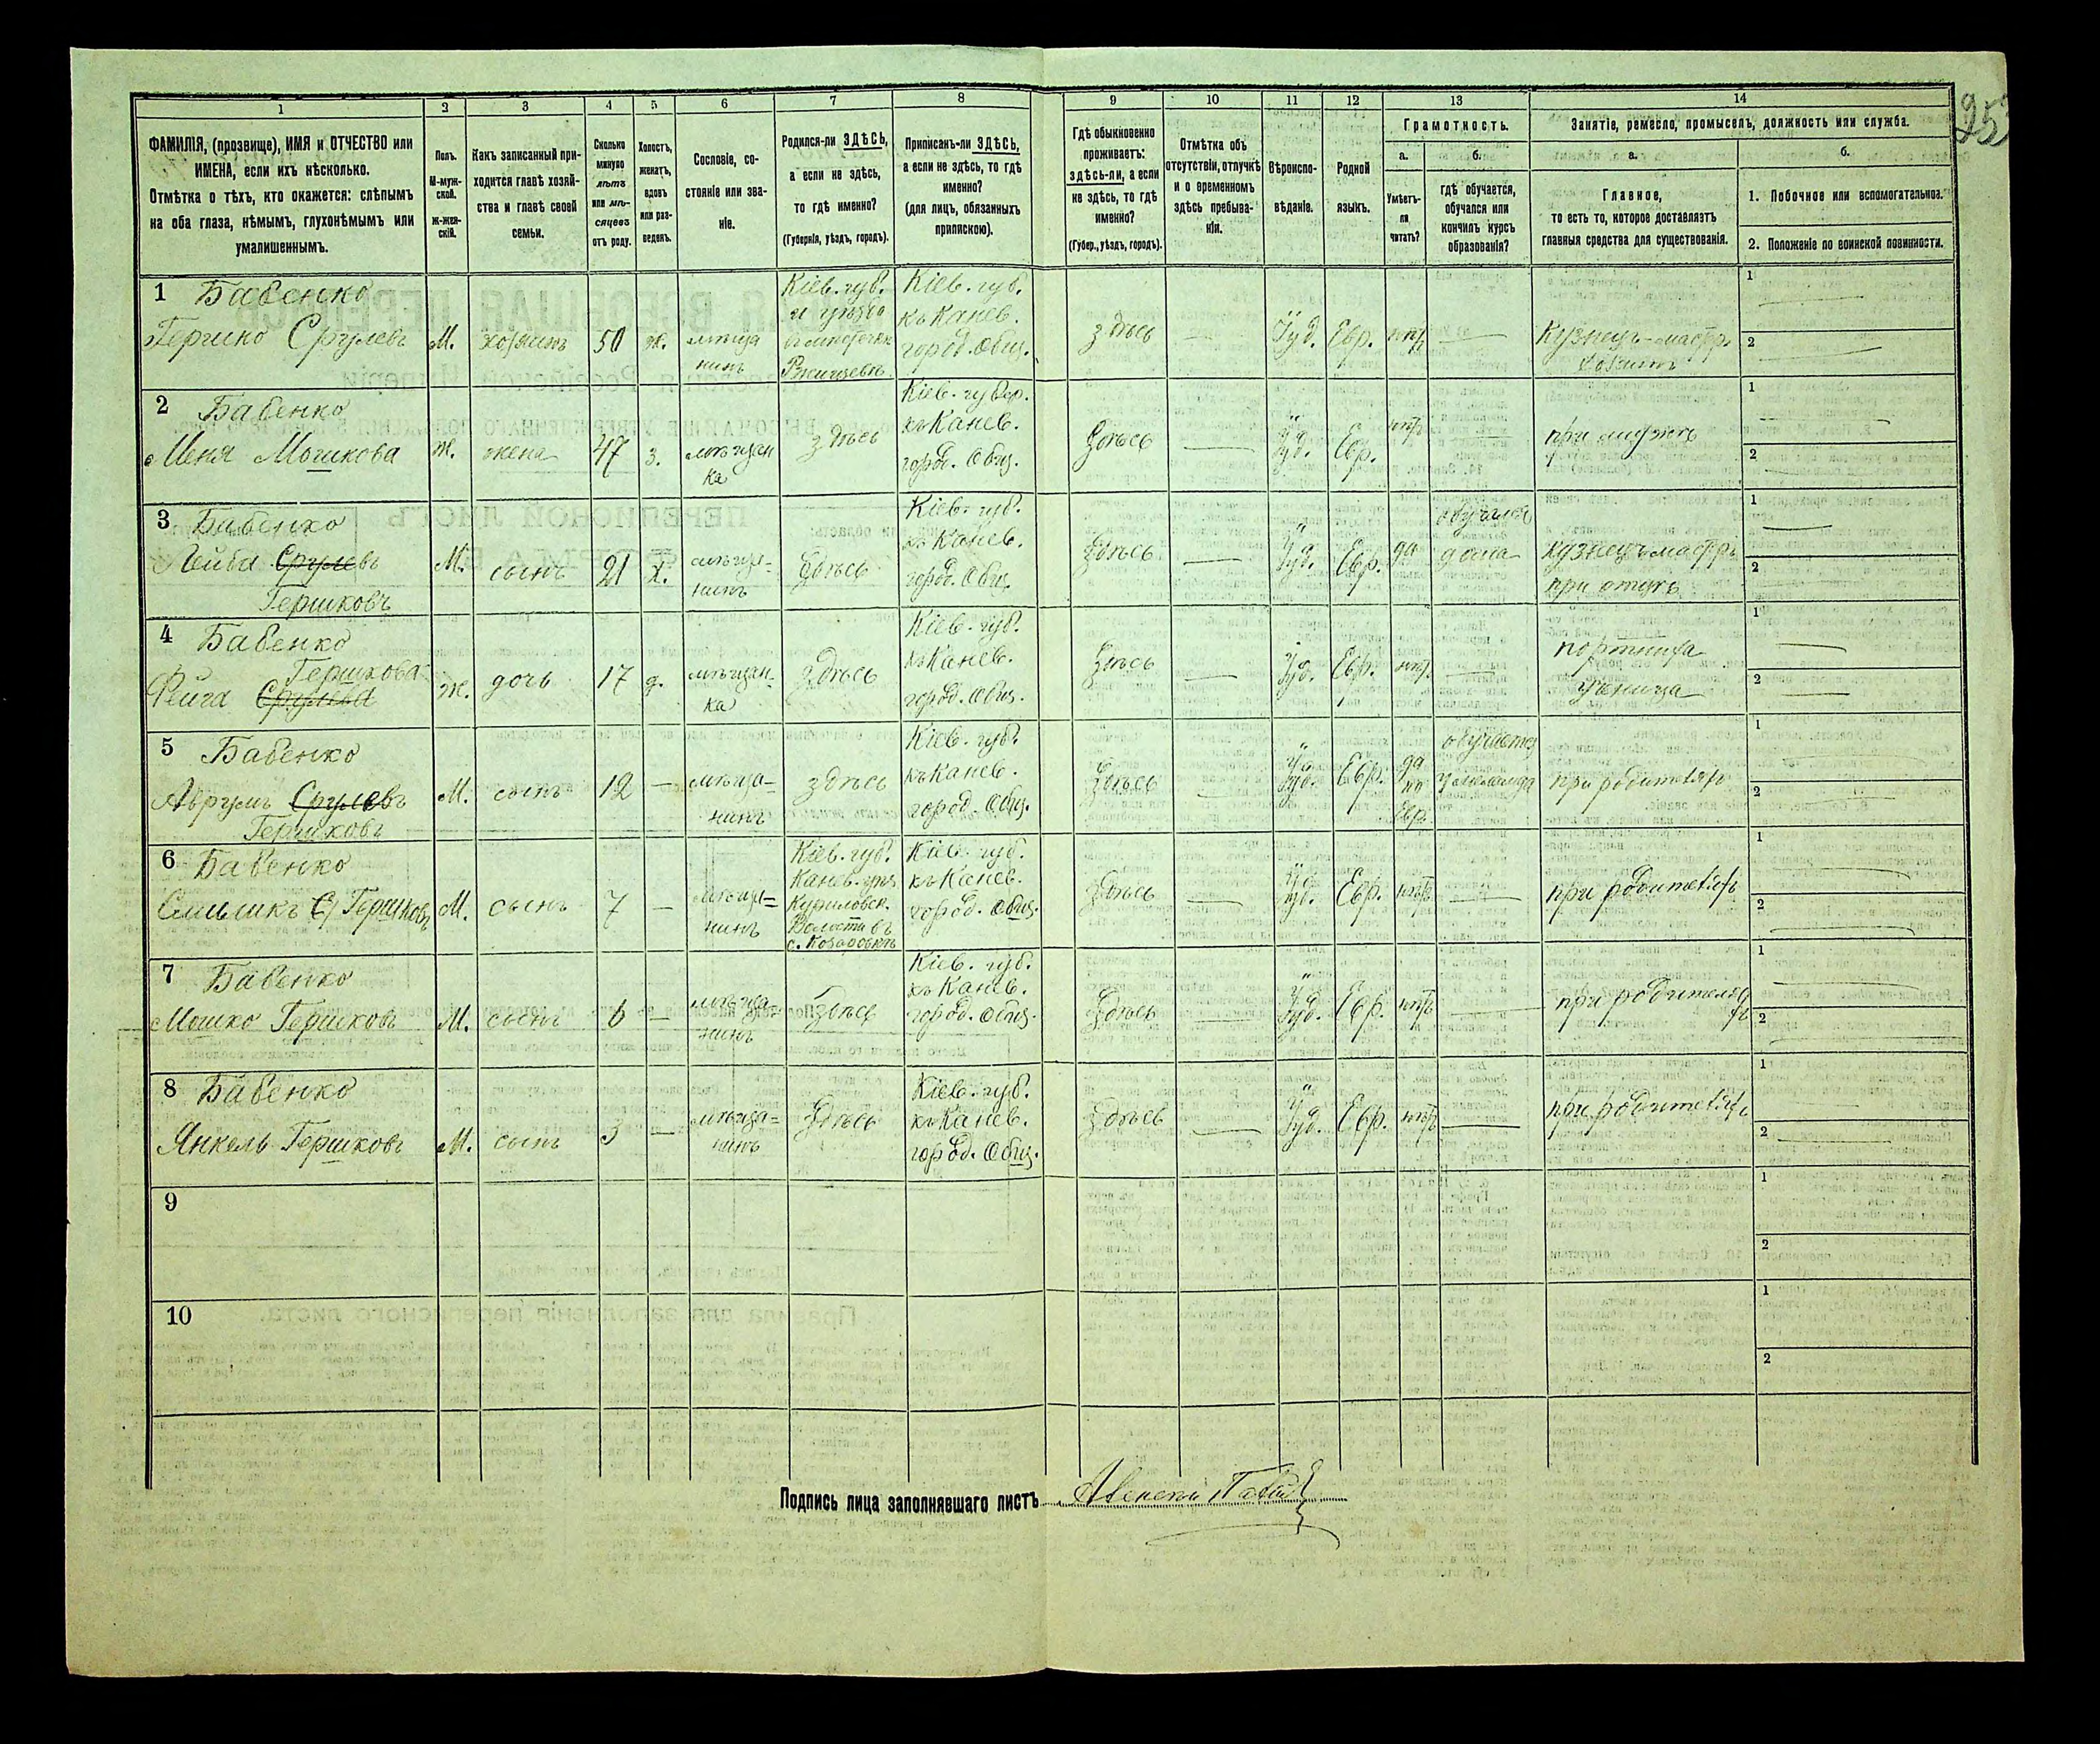 253
1 2 3 4 5 6 7 8 9 10 11 12 13 14
ФАМИЛІЯ, (прозвище), ИМЯ и ОТЧЕСТВО или
ИМЕНА, если ихъ нѣсколько.
Отмѣтка о тѣхъ, кто окажется: слѣпымъ
на оба глаза, нѣмымъ, глухонѣмымъ или
умалишеннымъ.
Полъ.
М-муж-
ской.
Ж-жен-
скій.
Какъ записанный при-
ходится главѣ хозяй-
ства и главѣ своей
семьи.
Сколько
минуло
лѣтъ
или мѣ-
сяцевъ
отъ роду.
Холостъ,
женатъ,
вдовъ
или раз-
веденъ.
Сословіе, со-
стояніе или зва-
ніе.
Родился-ли ЗДѢСЬ,
а если не здѣсь,
то гдѣ именно?
(Губернія, уѣздъ, городъ).
Приписанъ-ли ЗДѢСЬ,
а если не здѣсь, то гдѣ
именно?
(для лицъ, обязанныхъ
припискою).
Гдѣ обыкновенно
проживаетъ:
здѣсь-ли, а если
не здѣсь, то гдѣ
именно?
(Губер., уѣздъ, городъ).
Отмѣтка объ
отсутствіи, отлучкѣ
и о временномъ
здѣсь пребыва-
ніи.
Вѣроиспо-
вѣданіе.
Родной
языкъ.
Грамотность.
а.
Умѣетъ-
ли
читать?
б.
гдѣ обучается,
обучался или
кончилъ курсъ
образованія?
Занятіе, ремесло, промыселъ, должность или служба.
а.
Главное,
то есть то, которое доставляетъ
главныя средства для существованія.
б.
1. Побочное или вспомогательное.
2. Положеніе по воинской повинности.
1 Бабенко
Гершко Срулевъ
М.
хозяинъ
50
ж.
мѣща
нинъ
Кіев. губ.
и уѣзда
въ местечкѣ
Ржищевѣ
Кіев. губ.
къ Канев.
город. Общ.
здѣсь
Іуд.
Евр.
нѣтъ
Кузнецъ-мастр.
1
2
2 Бабенко
Меня Мошкова
Ж.
жена
47
з.
мѣщан
ка
здѣсь
Кіев. губер.
къ Канев.
город. Общ.
Здѣсь
Іуд.
Евр.
нѣтъ
при мужѣ
1
2
3 Бабенко
Лейба Срулевъ
Гершковъ
М.
сынъ
21
х.
мѣща-
нинъ
Здѣсь
Кіев. губ.
къ Канев.
город. Общ.
Здѣсь
Іуд.
Евр.
да
обучался
дома
кузнецъ мастръ
при отцѣ
1
2
4 Бабенко
Гершкова
Фейга Срулева
Ж.
дочь
17
д.
мѣщан-
ка
Здѣсь
Кіев. губ.
къ Канев.
город. Общ.
Здѣсь
Іуд.
Евр.
нѣт.
портниха
ученица
1
2
5 Бабенко
Аврумъ Срулевъ
Гершковъ
М.
сынъ
12
мѣща-
нинъ
здѣсь
Кіев. губ.
къ Канев.
город. Общ.
Здѣсь
Іуд.
Евр.
да
по
Евр.
обучается
у меламеда
при родителяхъ
1
2
6 Бабенко
Гершковъ
М.
сынъ
7
мѣща=
нинъ
Кіев. губ.
Канев. уѣз.
Куриловск.
Волости въ
с. Козаровкѣ
Кіев. губ.
къ Канев.
город. Общ.
здѣсь
Іуд.
Евр.
нѣтъ
при родителяхъ
1
2
7 Бабенко
Мошко Гершковъ
М.
сынъ
6
мѣща-
нинъ
Здѣсь
Кіев. губ.
къ Канев.
город. Общ.
Здѣсь
Іуд.
Евр.
нѣтъ
при родителя
хъ
1
2
8 Бабенко
Янкель Гершковъ
М.
сынъ
3
мѣща=
нинъ
Здѣсь
Кіев. губ.
къ Канев.
город. Общ.
здѣсь
Іуд.
Евр.
нѣтъ
при родителяхъ
1
2
9
1
2
10
1
2
Подпись лица заполнявшаго листъ